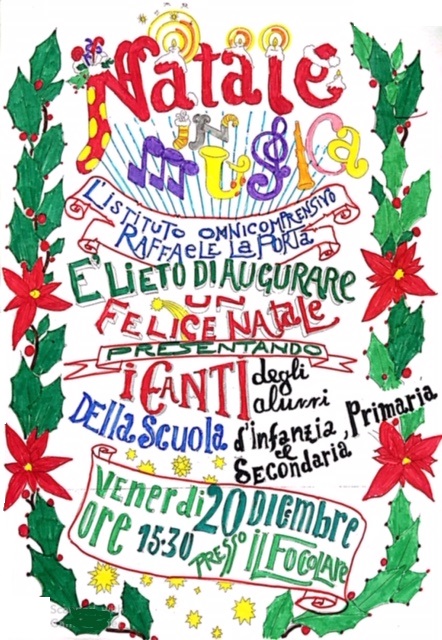 Natale
IN
musica
L'ISTITUTO OMNICOMPRENSIVO
RAFFAELE LA PORTA
E' LIETO DI AUGURARE
UN
FELICE NATALE
PRESENTANDO
i CANTI degli
alunni
DELLA SCUOLA d'infanzia, Primaria
e
Secondaria
Venerdì 20 DICEMBRE
ore 15:30 PRESSO IL FOCOLARE